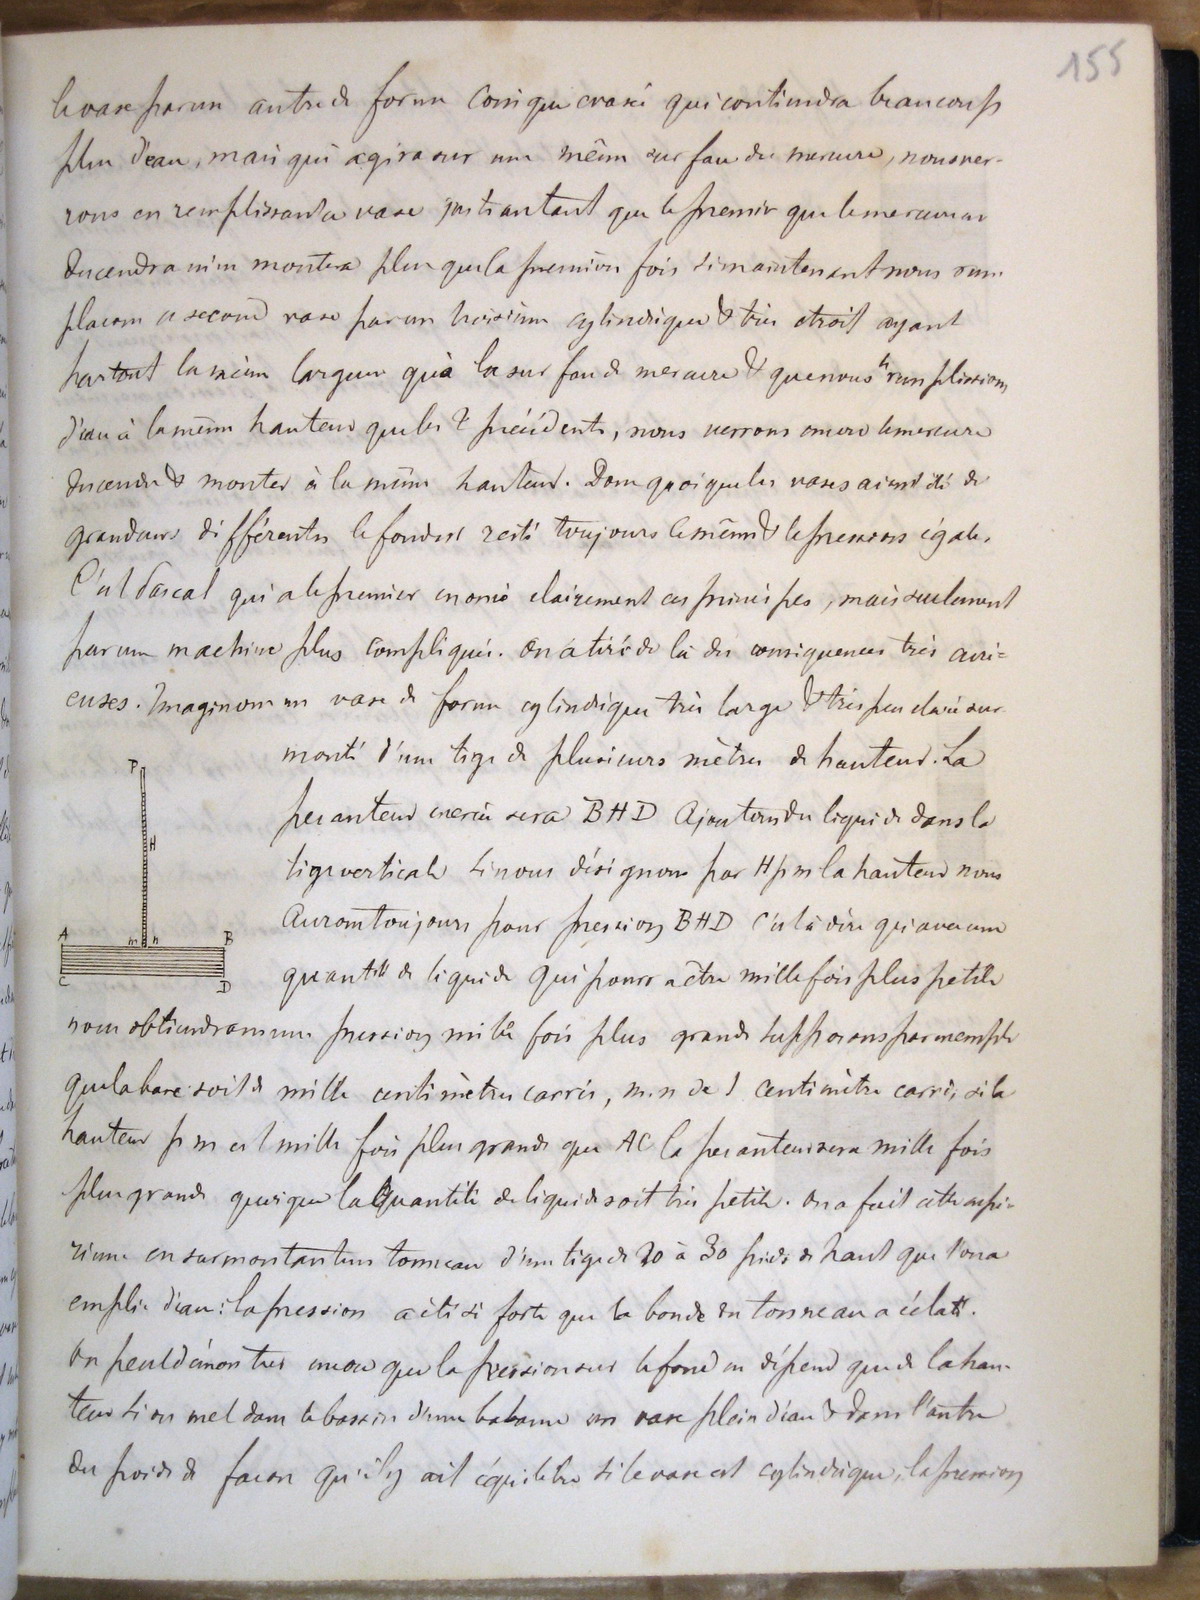 155
le vase par un autre de forme conique evasé qui contiendra beaucoup
plus d'eau, mais qui agira sur une même surface du mercure, nous ver-
rons en remplissant ce vase juste autant que le premier que le mercure ne
descendra ni ne montera plus que la première fois si maintenant nous rem
plaçons ce second vase par un troisième cylindrique & très etroit ayant
partout la même largeur qu'à la surface de mercure & que nous le remplissions
d'eau à la même hauteur que les 2 précédents, nous verrons encore le mercure
descendre & monter à la même hauteur. Donc quoique les vases aient été de
grandeurs différentes le fond est resté toujours le même & les pressions égales.
C'est Pascal qui a le premier enoncé clairement ces principes, mais seulement
par une machine plus compliquée. On a tiré de là des consequences très curi=
euses. Imaginons un vase de forme cylindrique très large & très peu elevé sur
monté d'une tige de plusieurs mètres de hauteur. La
pesanteur exercée sera BHD Ajoutons du liquide dans la
tige verticale si nous désignons par H pm la hauteur nous
aurons toujours pour pression BHD c'est à dire qu'avec une
quantité de liquide qui pourra être mille fois plus petite
P
H
A m n B
C D
nous obtiendrons une pression mille fois plus grande supposons par exemple
que la base soit de mille centimètres carrés, m.n de 1 centimètre carré, si la
hauteur pm est mille fois plus grande que AC la pesanteur sera mille fois
plus grande quoique la quantité de liquide soit très petite. On a fait cette expé-
rience en surmontant un tonneau d'une tige de 20 à 30 pieds de haut que l'on a
emplie d'eau : la pression a été si forte que la bonde du tonneau a éclaté.
On peut démontrer encore que la pression sur le fond ne dépend que de la hau-
teur si on met dans le bassin d'une balance un vase plein d'eau & dans l'autre
des poids de facon qu'il y ait équilibre si le vase est cylindrique, la pression